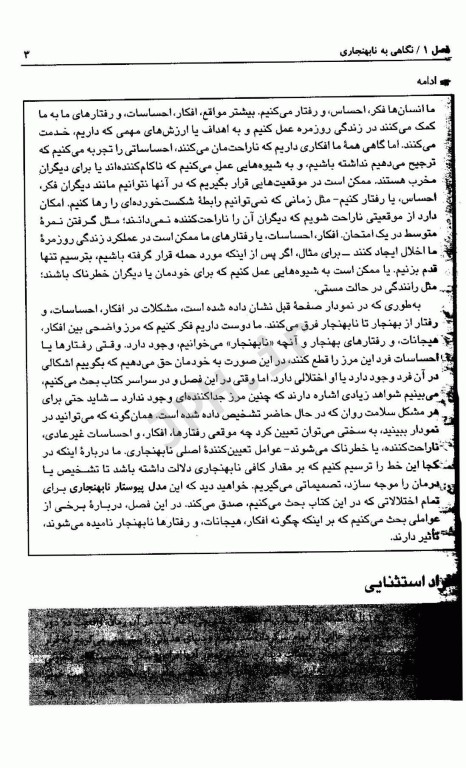 فصل ۱ / نگاهی به نابهنجاری ۳
ادامه
ما انسان‌ها فکر، احساس، و رفتار می‌کنیم. بیشتر مواقع، افکار، احساسات، و رفتارهای ما به ما
کمک می‌کنند در زندگی روزمره عمل کنیم و به اهداف یا ارزش‌های مهمی که داریم، خدمت
می‌کنند. اما گاهی همهٔ ما افکاری داریم که ناراحت‌مان می‌کنند، احساساتی را تجربه می‌کنیم که
ترجیح می‌دهیم نداشته باشیم، و به شیوه‌هایی عمل می‌کنیم که ناکام‌کننده‌اند یا برای دیگران
مخرب هستند. ممکن است در موقعیت‌هایی قرار بگیریم که در آنها نتوانیم مانند دیگران فکر،
احساس، یا رفتار کنیم– مثل زمانی که نمی‌توانیم رابطهٔ شکست‌خورده‌ای را رها کنیم. امکان
دارد از موقعیتی ناراحت شویم که دیگران آن را ناراحت‌کننده نمی‌دانند؛ مثل گرفتن نمرهٔ
متوسط در یک امتحان. افکار، احساسات، یا رفتارهای ما ممکن است در عملکرد زندگی روزمرهٔ
ما اخلال ایجاد کنند –برای مثال، اگر پس از اینکه مورد حمله قرار گرفته باشیم، بترسیم تنها
قدم بزنیم. یا ممکن است به شیوه‌هایی عمل کنیم که برای خودمان یا دیگران خطرناک باشند؛
مثل رانندگی در حالت مستی.
به‌طوری که در نمودار صفحهٔ قبل نشان داده شده است، مشکلات در افکار، احساسات، و
رفتار از بهنجار تا نابهنجار فرق می‌کنند. ما دوست داریم فکر کنیم که مرز واضحی بین افکار،
هیجانات، و رفتارهای بهنجار و آنچه «نابهنجار» می‌خوانیم، وجود دارد. وقتی رفتارها یا
احساسات فرد این مرز را قطع کنند، در این صورت به خودمان حق می‌دهیم که بگوییم اشکالی
در آن فرد وجود دارد یا او اختلالی دارد. اما وقتی در این فصل و در سراسر کتاب بحث می‌کنیم،
می‌بینیم شواهد زیادی اشاره دارند که چنین مرز جداکننده‌ای وجود ندارد –شاید حتی برای
هر مشکل سلامت روان که در حال حاضر تشخیص داده شده است. همان‌گونه که می‌توانید در
نمودار ببینید، به سختی می‌توان تعیین کرد چه موقعی رفتارها، افکار، و احساسات غیرعادی،
ناراحت‌کننده، یا خطرناک می‌شوند– عوامل تعیین‌کنندهٔ اصلی نابهنجاری. ما دربارهٔ اینکه در
کجا این خط را ترسیم کنیم که بر مقدار کافی نابهنجاری دلالت داشته باشد تا تشخیص یا
درمان را موجه سازد، تصمیماتی می‌گیریم. خواهید دید که این مدل پیوستار نابهنجاری برای
تمام اختلالاتی که در این کتاب بحث می‌کنیم، صدق می‌کند. در این فصل، دربارهٔ برخی از
عواملی بحث می‌کنیم که بر اینکه چگونه افکار، هیجانات، و رفتارها نابهنجار نامیده می‌شوند،
تأثیر دارند.
استثنایی